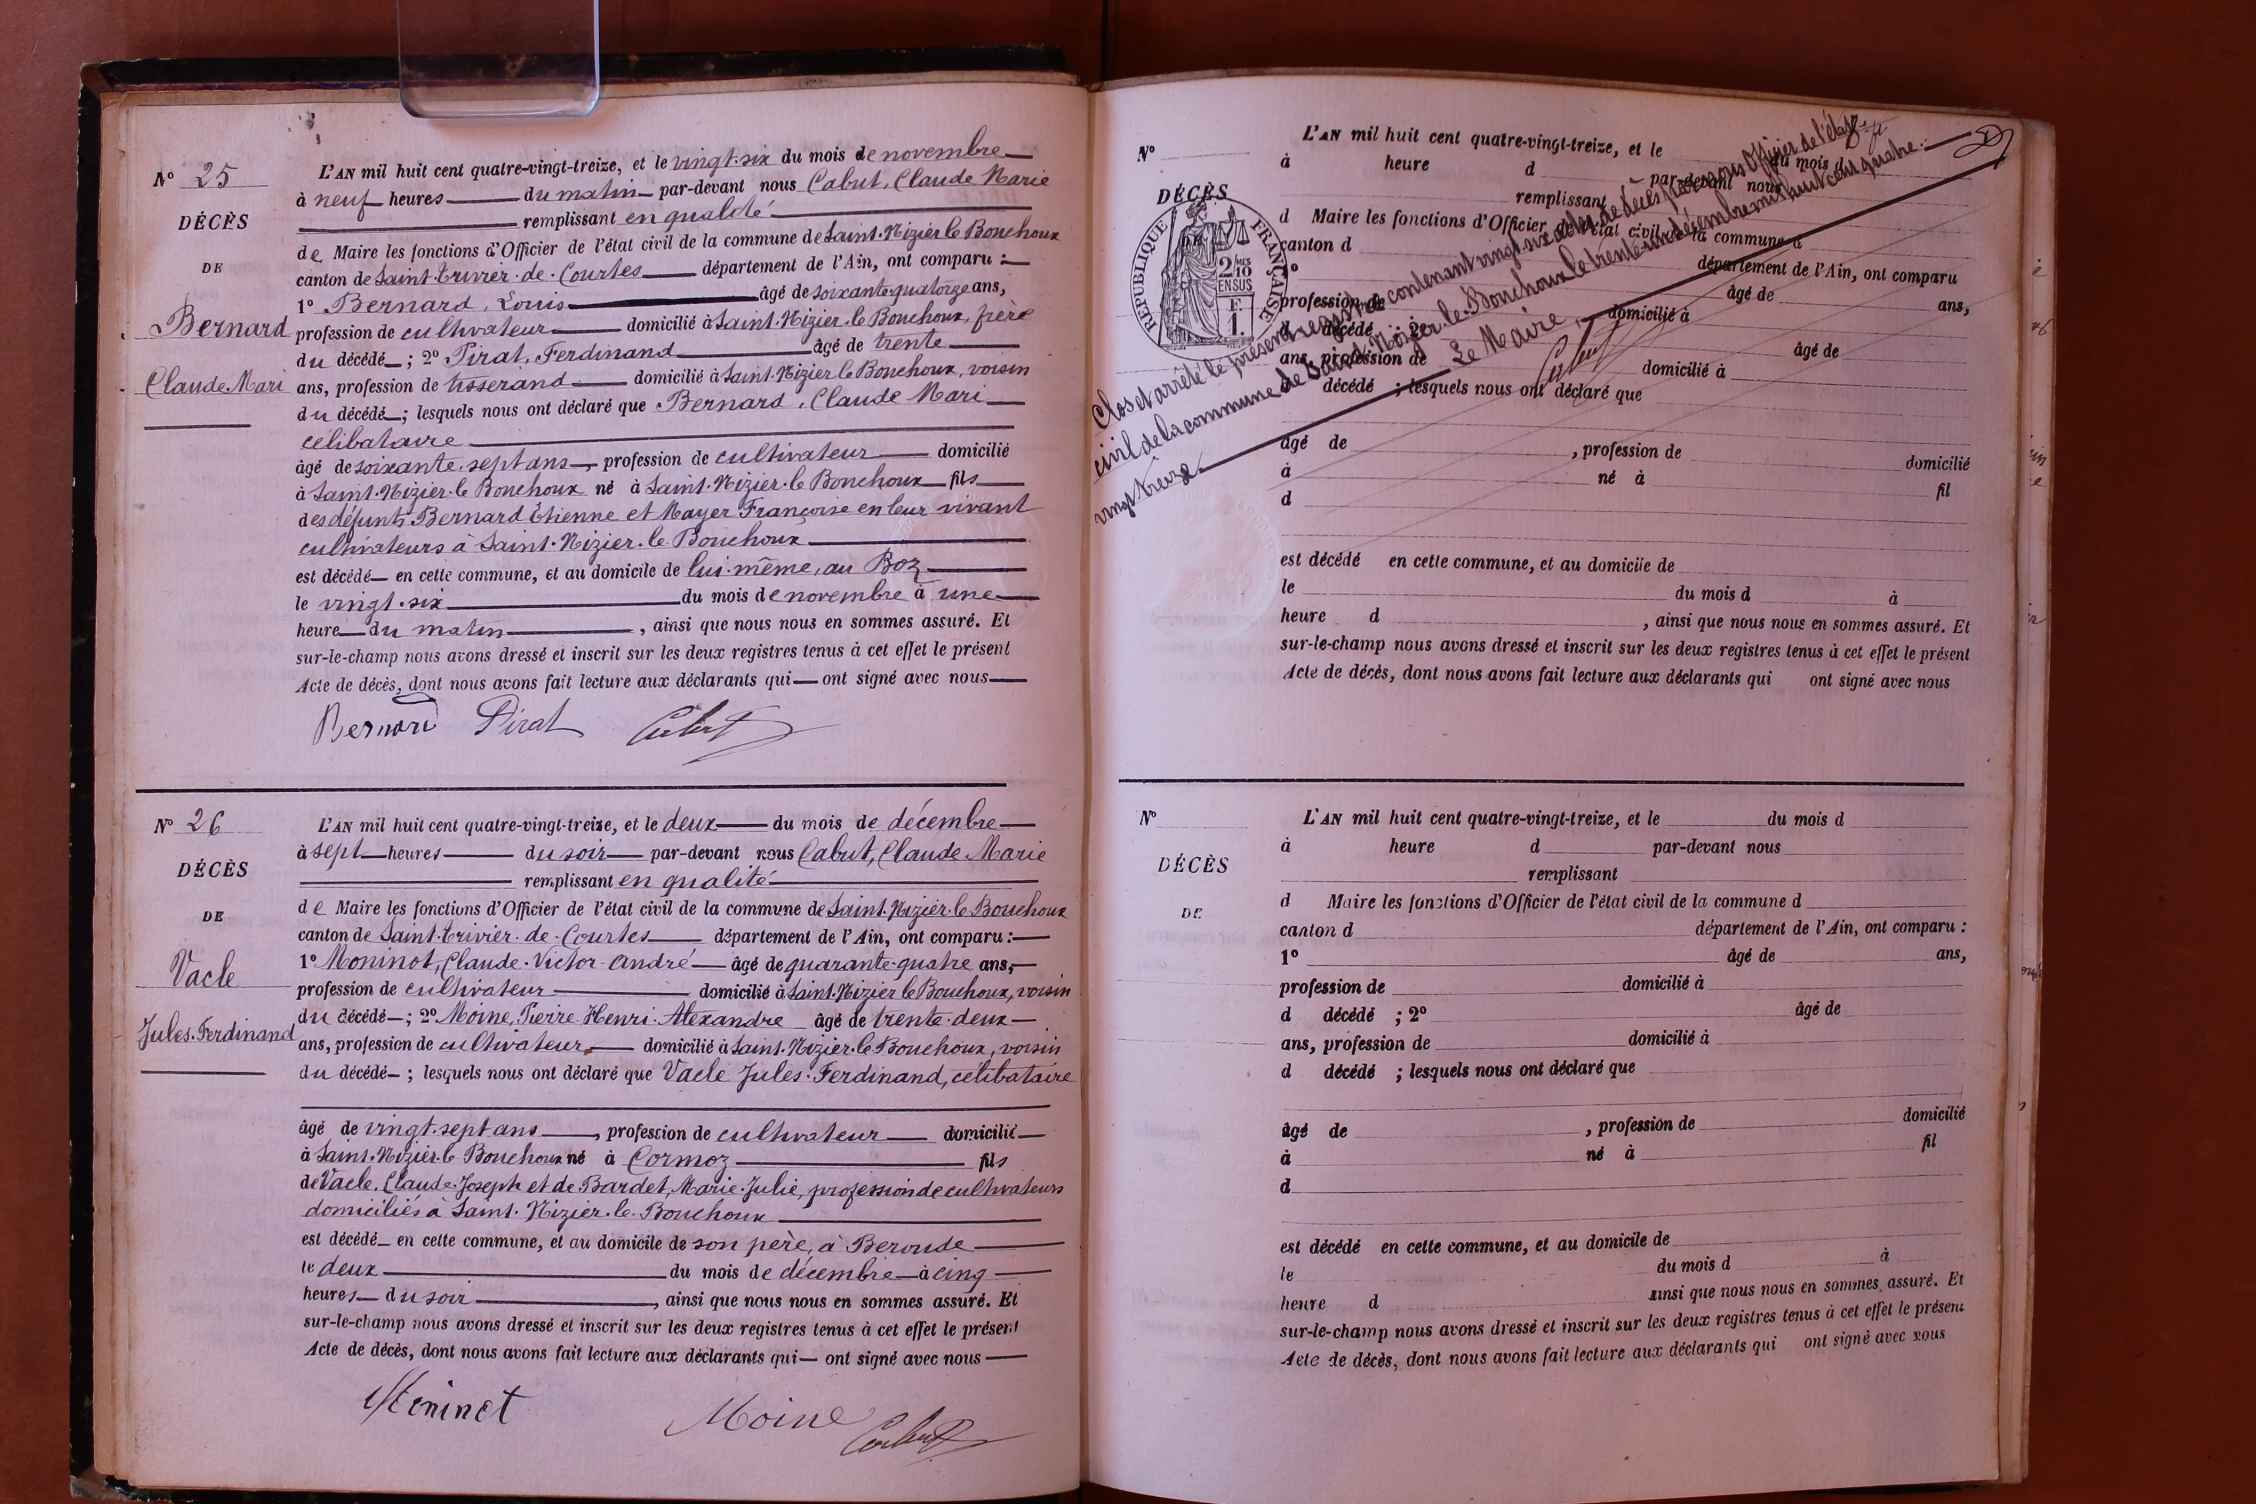 N° 25
DÉCÈS
DE
Bernard
Claude Mari
L'AN mil huit cent quatre-vingt-treize, et le vingt-six du mois de novembre
à neuf heures du matin par-devant nous Cabut, Claude Marie
remplissant en qualité
de Maire les fonctions d'Officier de l'état civil de la commune de Saint-Nizier le Bouchoux
canton de Saint-Trivier-de-Courtes département de l'Ain, ont comparu :
1° Bernard, Louis âgé de soixante quatorze ans,
profession de cultivateur domicilié à Saint-Nizier-le Bouchoux, frère
du décédé ; 2° Pirat, Ferdinand âgé de trente
ans, profession de tisserand domicilié à Saint-Nizier le Bouchoux, voisin
du décédé ; lesquels nous ont déclaré que Bernard, Claude Mari
célibataire
âgé de soixante-sept ans, profession de cultivateur domicilié
à Saint-Nizier-le Bouchoux né à Saint-Nizier-le Bouchoux fils
des défunts Bernard Étienne et Mayer Françoise en leur vivant
cultivateurs à Saint-Nizier-le Bouchoux
est décédé en cette commune, et au domicile de lui-même, au Boz
le vingt-six du mois de novembre à une
heure du matin , ainsi que nous nous en sommes assuré. Et
sur-le-champ nous avons dressé et inscrit sur les deux registres tenus à cet effet le présent
Acte de décès, dont nous avons fait lecture aux déclarants qui ont signé avec nous
Bernard Pirat Cabut
N° 26
DÉCÈS
DE
Vacle
Jules-Ferdinand
L'AN mil huit cent quatre-vingt-treize, et le deux du mois de décembre
à sept heures du soir par-devant nous Cabut, Claude Marie
remplissant en qualité
de Maire les fonctions d'Officier de l'état civil de la commune de Saint-Nizier-le Bouchoux
canton de Saint-Trivier-de-Courtes département de l'Ain, ont comparu :
1° Moninot, Claude-Victor-André âgé de quarante-quatre ans,
profession de cultivateur domicilié à Saint-Nizier le Bouchoux, voisin
du décédé ; 2° Moine, Pierre-Henri-Alexandre âgé de trente-deux
ans, profession de cultivateur domicilié à Saint-Nizier-le Bouchoux, voisin
du décédé ; lesquels nous ont déclaré que Vacle Jules-Ferdinand, célibataire
âgé de vingt-sept ans , profession de cultivateur domicilié
à Saint-Nizier-le Bouchoux né à Cormoz fils
de Vacle, Claude-Joseph et de Bardet, Marie-Julie, profession de cultivateurs
domiciliés à Saint-Nizier-le-Bouchoux
est décédé en cette commune, et au domicile de son père, à Beroude
le deux du mois de décembre à cinq
heures du soir , ainsi que nous nous en sommes assuré. Et
sur-le-champ nous avons dressé et inscrit sur les deux registres tenus à cet effet le présent
Acte de décès, dont nous avons fait lecture aux déclarants qui ont signé avec nous
Moninot Moine Cabut
N°
DÉCÈS
DE
RÉPUBLIQUE FRANÇAISE
2/10 MES
EN SUS
F.
1.
L'AN mil huit cent quatre-vingt-treize, et le du mois d
à heure d par-devant nous
remplissant
d Maire les fonctions d'Officier de l'état civil de la commune d
canton d département de l'Ain, ont comparu
1° âgé de ans,
profession de domicilié à
d décédé ; 2° âgé de
ans, profession de domicilié à
d décédé ; lesquels nous ont déclaré que
âgé de , profession de domicilié
à né à fil
d
est décédé en cette commune, et au domicile de
le du mois d à
heure d , ainsi que nous nous en sommes assuré. Et
sur-le-champ nous avons dressé et inscrit sur les deux registres tenus à cet effet le présent
Acte de décès, dont nous avons fait lecture aux déclarants qui ont signé avec nous
Clos et arrêté le présent registre contenant vingt-six actes de décès par nous Officier de l'état
civil de la commune de Saint-Nizier-le-Bouchoux le trente-un décembre mil huit cent quatre
vingt treize Le Maire,
Cabut
N°
DÉCÈS
DE
L'AN mil huit cent quatre-vingt-treize, et le du mois d
à heure d par-devant nous
remplissant
d Maire les fonctions d'Officier de l'état civil de la commune d
canton d département de l'Ain, ont comparu :
1° âgé de ans,
profession de domicilié à
d décédé ; 2° âgé de
ans, profession de domicilié à
d décédé ; lesquels nous ont déclaré que
âgé de , profession de domicilié
à né à fil
d
est décédé en cette commune, et au domicile de
le du mois d à
heure d ainsi que nous nous en sommes assuré. Et
sur-le-champ nous avons dressé et inscrit sur les deux registres tenus à cet effet le présent
Acte de décès, dont nous avons fait lecture aux déclarants qui ont signé avec nous